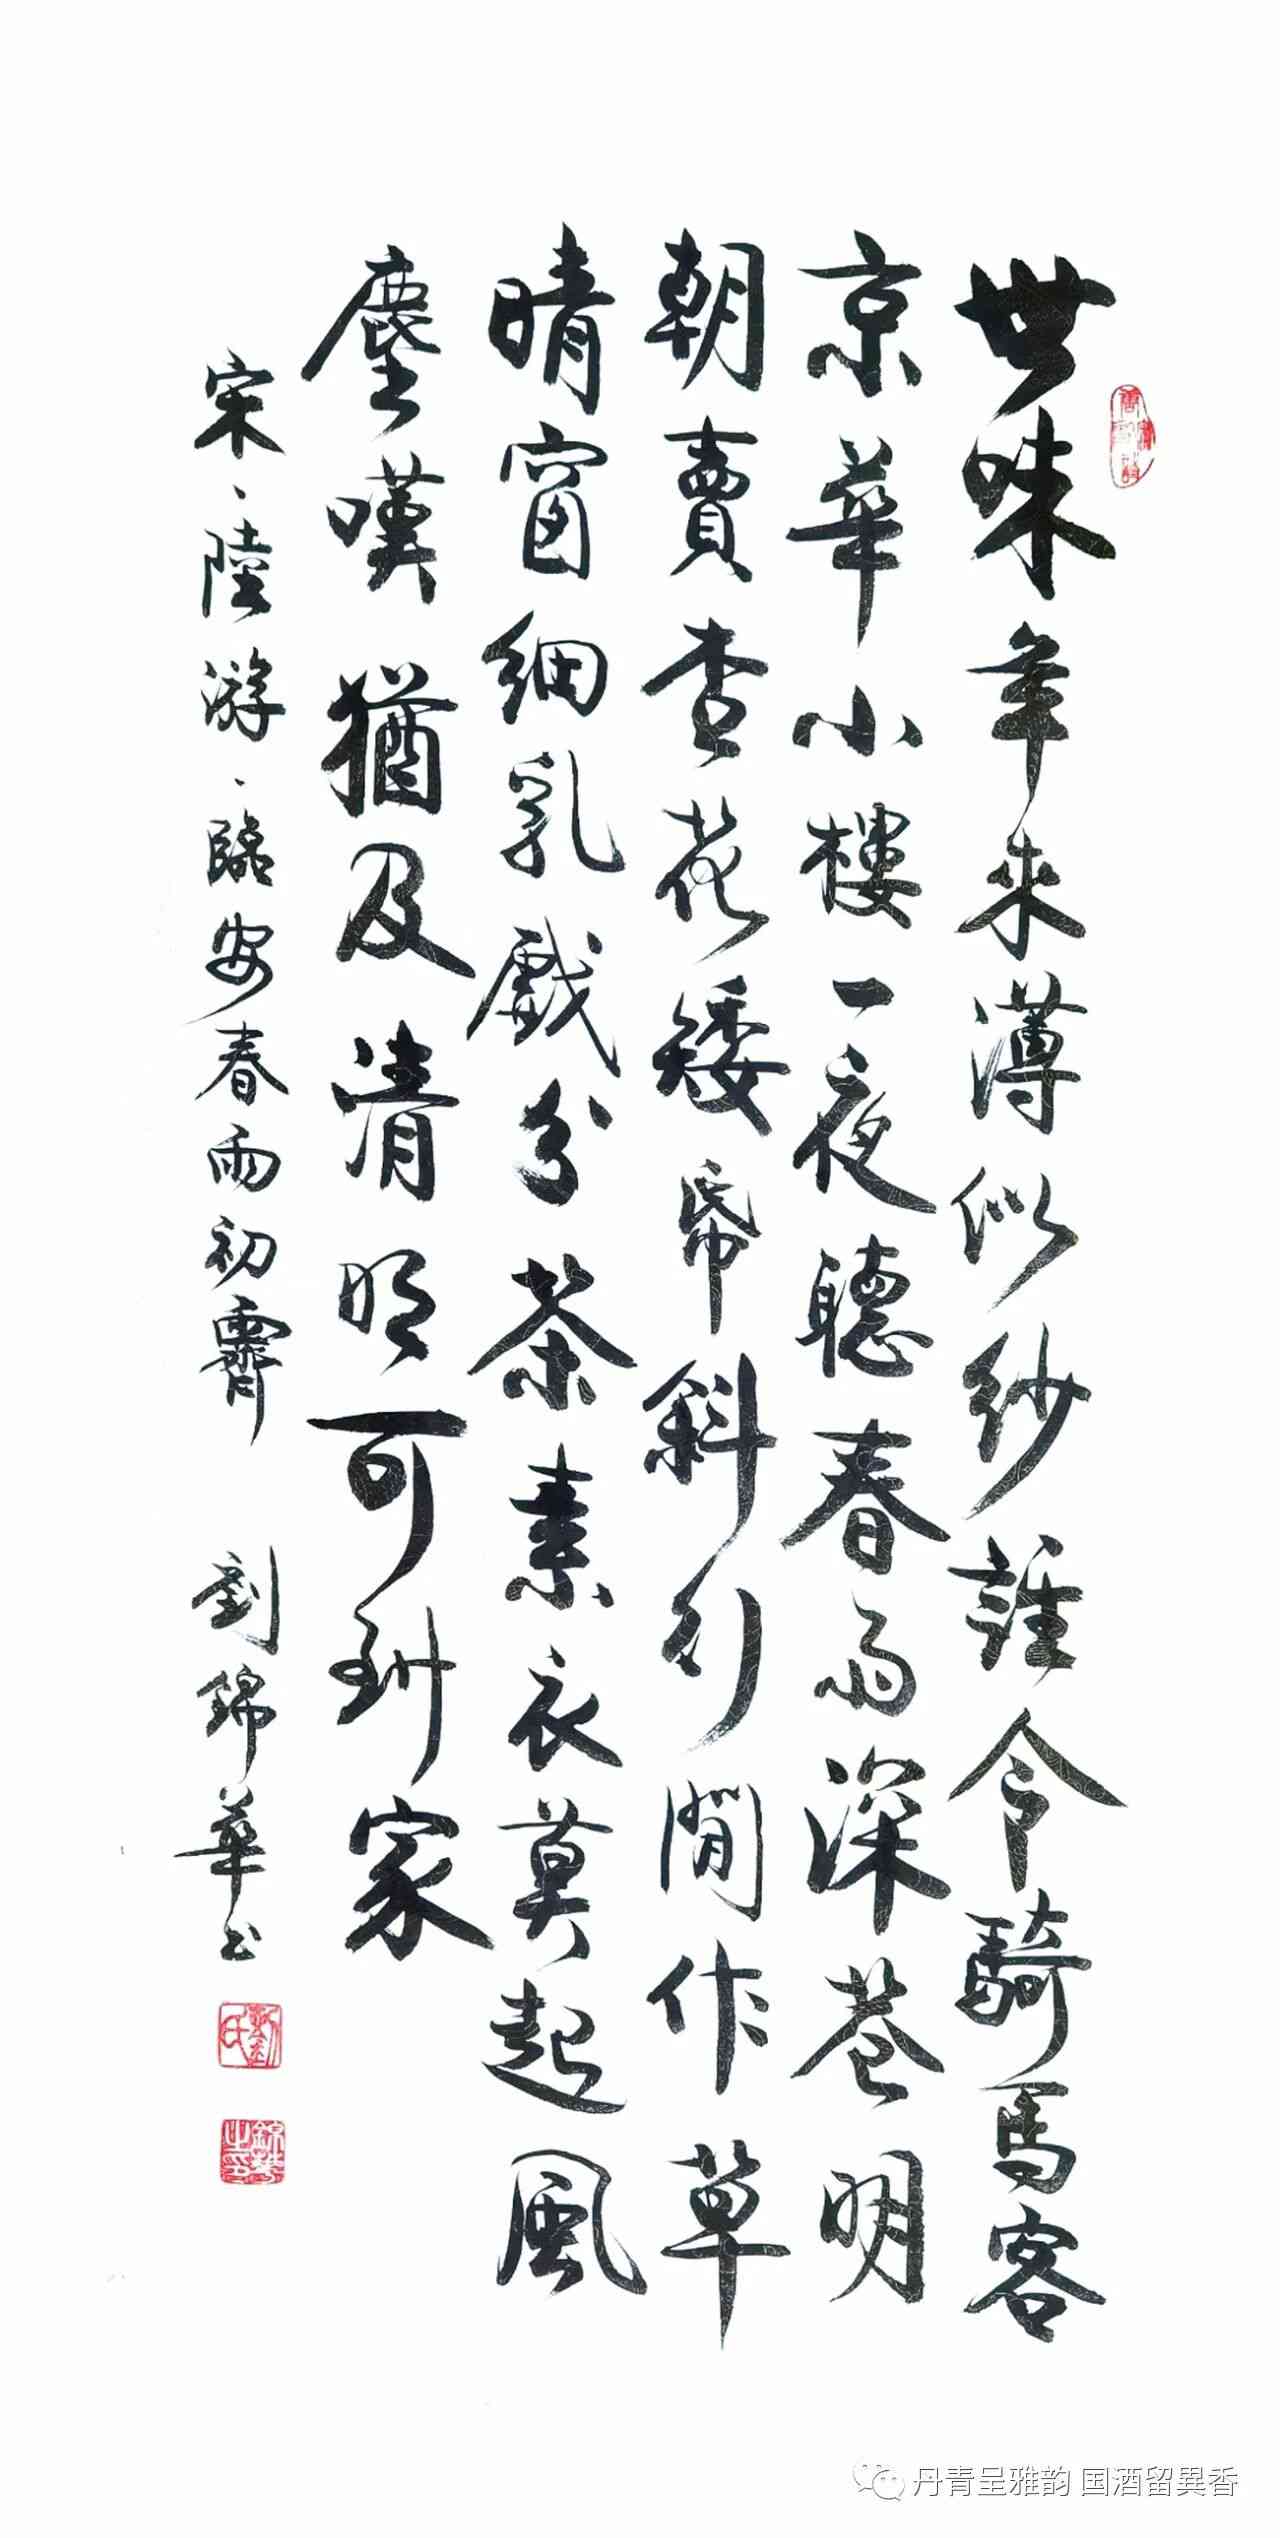 世味年来薄似紗誰令騎馬客
京華小樓一夜聽春雨深巷明
朝賣杏花矮帋斜行閒作草
晴窗細乳戲分茶素衣莫起風
塵嘆猶及清明可到家
宋、陸游、臨安春雨初霽 劉錦華书
劉氏
錦華之印
丹青呈雅韵 国酒留異香